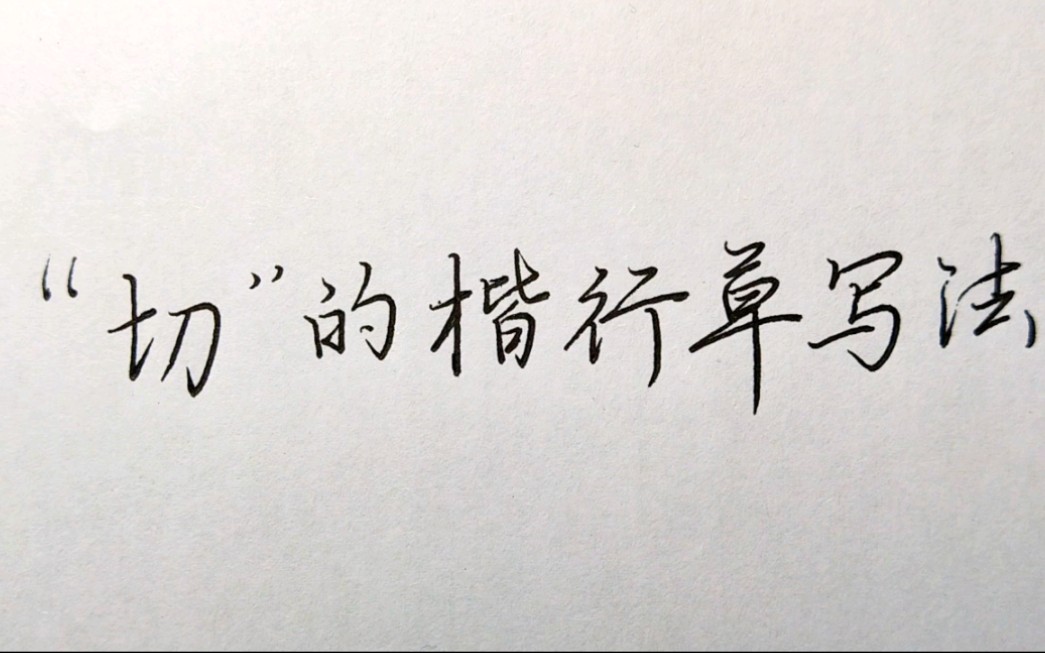 “切”的楷行草写法